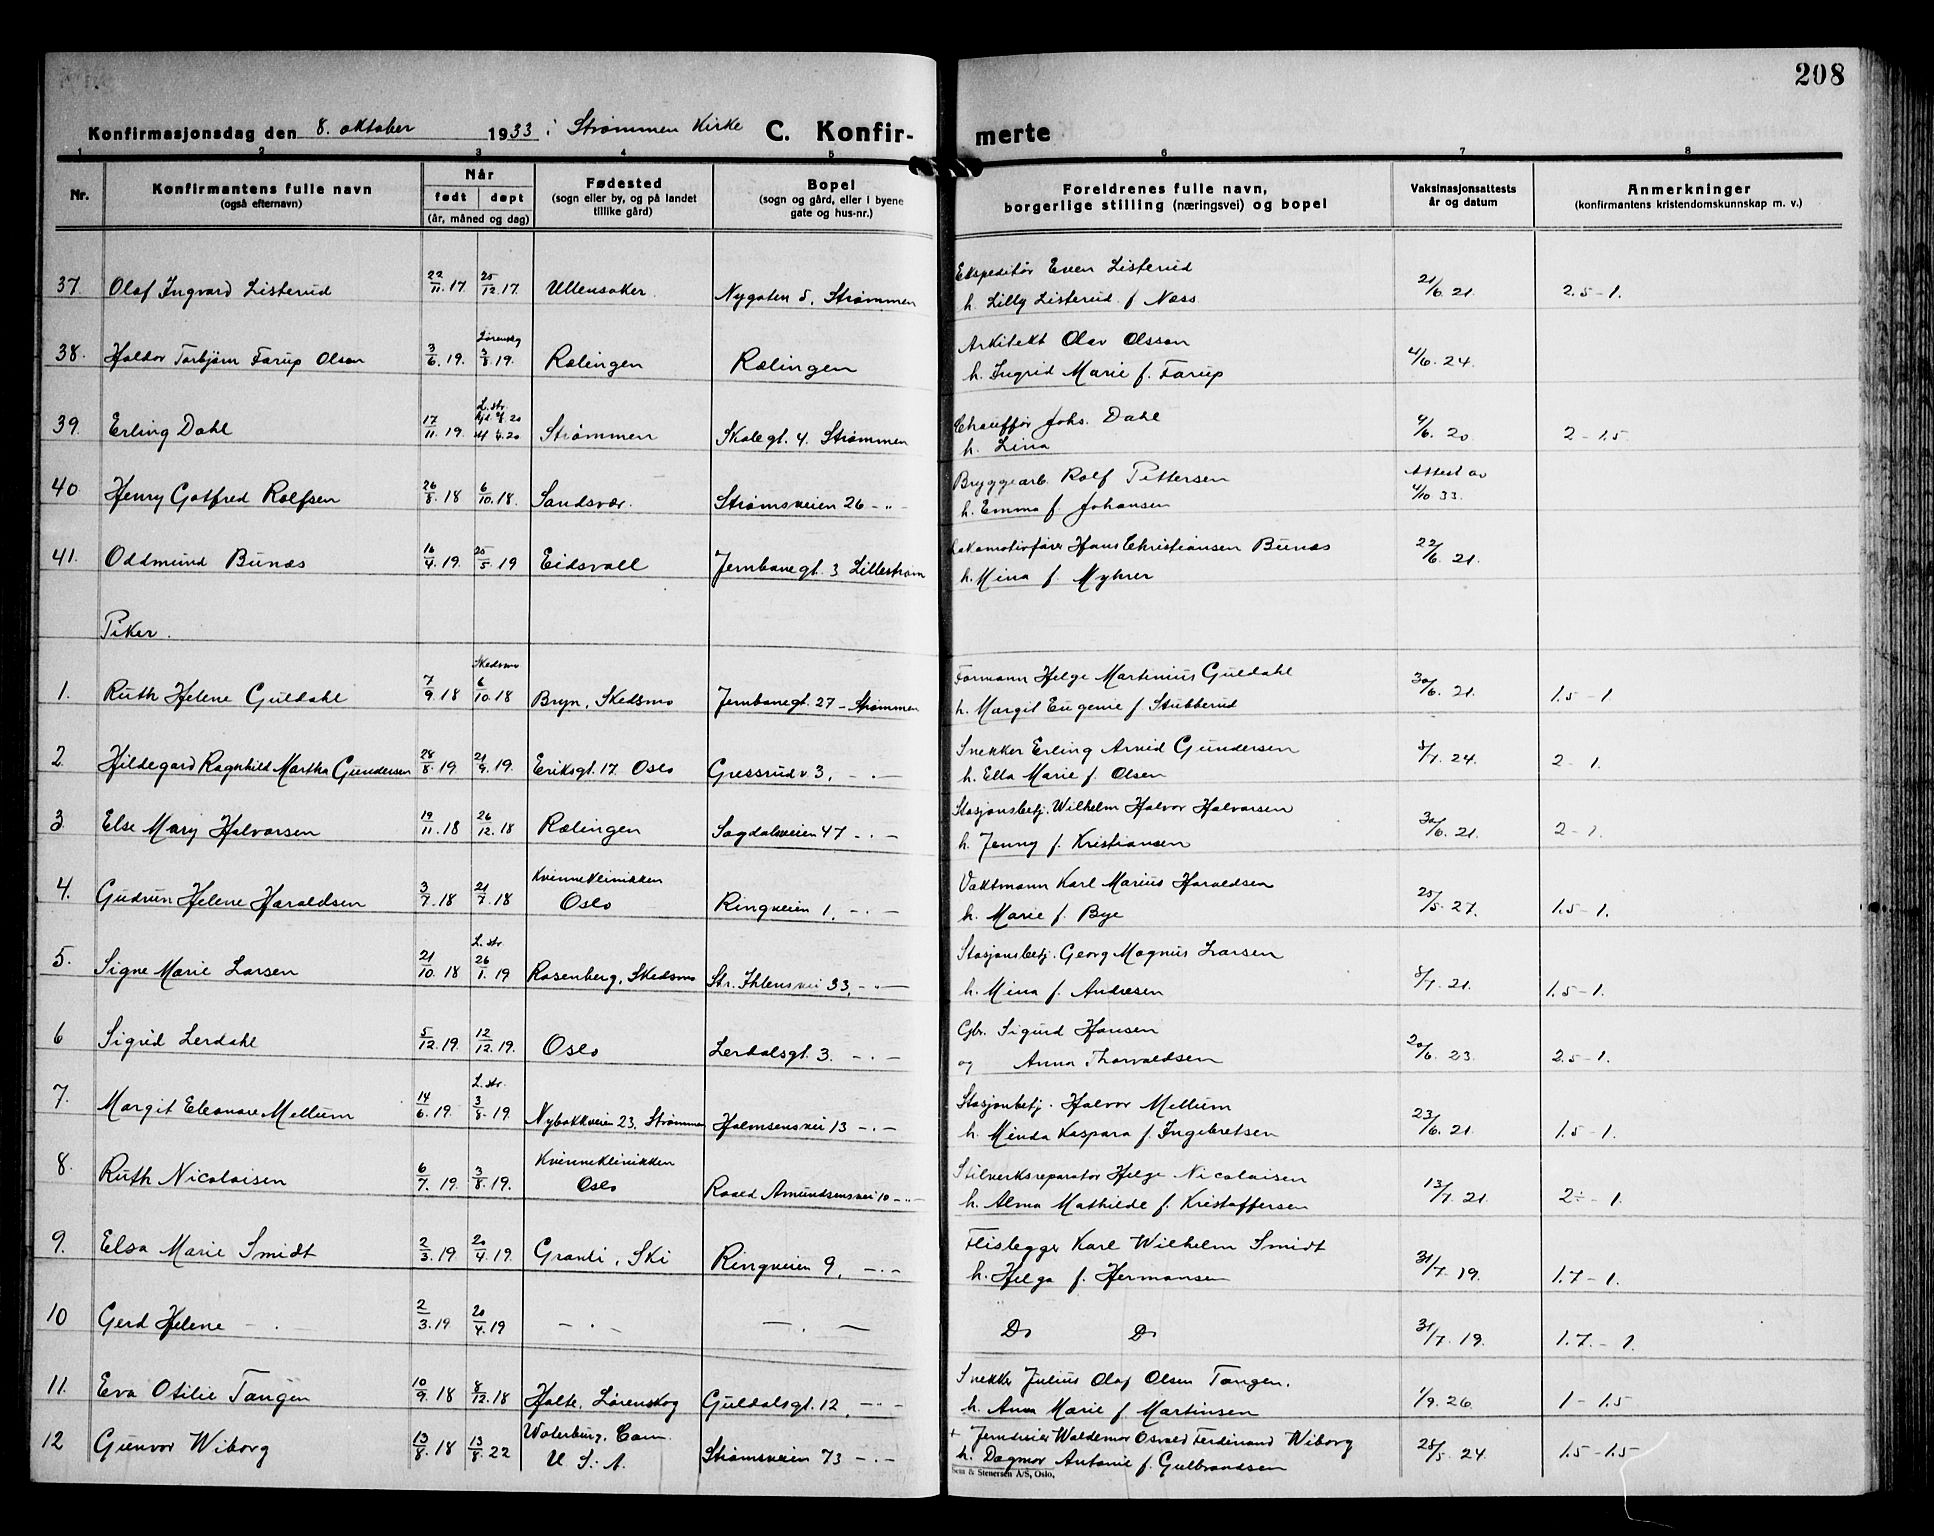 208
Konfirmasjonsdag den 8. oktober 1933 i Strømmen Kirke C. Konfir- merte
1 2 3 4 5 6 7 8
Nr. Konfirmantens fulle navn (også efternavn) Når født døpt (år, måned og dag) Fødested (sogn eller by, og på landet tillike gård) Bopel (sogn og gård, eller i byene gate og hus-nr.) Foreldrenes fulle navn, borgerlige stilling (næringsvei) og bopel Vaksinasjonsattests år og datum Anmerkninger (konfirmantens kristendomskunnskap m. v.)
Ekspeditør Even Listerud
37. Olaf Ingvard Listerud 22/11. 17 25/12. 17. Ullensaker. Nygaten 5, Strømmen h. Lilly Listerud f. Næss 21/6. 21. 2.5 - 1.
Lørenskog Arkitekt Olav Olsson
38. Haldor Torbjørn Farup Olson 3/6. 19. 3/8. 19. Rælingen Rælingen h. Ingrid Marie f. Farup 4/6. 24.
L. str. Chauffør Johs. Dahl
39. Erling Dahl 17/11. 19. Strømmen Skolegt. 4. Strømmen h. Lina 4/6. 20 2 - 1.5
Bryggearb. Rolf Pettersen Attest av
40 Henry Gotfred Rolfsen 26/8. 18 6/10. 18. Sandsvær. Strømsveien 26 - " - h. Emma f. Johansen 4/10 33.
Lokomotivfører Hans Christiansen Bunæs
41. Oddmund Bunæs 16/4. 19. 25/5. 19 Eidsvoll Jernbanegt. 3 Lillestrøm h. Mina f. Myhrer 22/6. 21.
Piker.
Skedsmo Formann Helge Martinius Guldahl
1. Ruth Helene Guldahl 7/9. 18 6/10. 18 Bryn, Skedsmo Jernbanegt. 27 - Strømmen h. Margit Eugenie f. Stubberud 30/6. 21. 1.5 - 1
Snekker Erling Arvid Gundersen
2. Hildegard Ragnhild Martha Gundersen 28/8. 19. 21/9. 19. Eriksgt. 17. Oslo Gressrudv. 3, - " - h. Ella Marie f. Olsen 8/7. 24. 2 - 1.
Stasjonsbetj. Wilhelm Halvor Halvorsen
3. Else Mary Halvorsen 19/11. 18 26/12. 18 Rælingen Sagdalsveien 47 - " - h. Jenny f. Kristiansen 30/6. 21. 2 - 1.
Kvinneklinikken Vaktmann Karl Marius Haraldsen
4. Gudrun Helene Haraldsen 3/7. 18 21/7. 18 Oslo Ringveien 1, - " - h. Marie f. Bye 25/5. 27. 1.5 - 1.
L. str. Stasjonsbetj. Georg Magnus Larsen
5. Signe Marie Larsen 21/10. 18 26/1. 19 Rosenberg, Skedsmo Str. Ihlens vei 33, - " - h. Mina f. Andresen 8/7. 21. 1.5 - 1.
Gbr. Sigurd Hansen
6 Sigrid Lerdahl 5/12. 19. 12/12. 19. Oslo Lerdalsgt. 3. - " - og Anna Thorvaldsen 20/6. 23. 2.5 - 1.
L. str. Stasjonbetj. Halvor Mellum
7. Margit Eleonore Mellum 14/6. 19. 3/8. 19 Nybakkveien 23, Strømmen Holmsensvei 13 - " - h. Minda Kaspara f. Ingebretsen 23/6. 21. 1.5 - 1.
Kvinneklinikken Stilverksreparatør Helge Nicolaisen
8. Ruth Nicolaisen 6/7. 19. 3/8. 19. Oslo Roald Amundsensvei 10 - " - h. Alma Mathilde f. Kristoffersen 13/7. 21. 2÷ - 1.
Flislegger Karl Wilhelm Smidt
9. Elsa Marie Smidt 2/3. 19 20/4. 19. Granli, Ski Ringveien 9, - " - h. Helga f. Hermansen 31/7. 19. 1.7 - 1.
10 Gerd Helene - " - 2/3. 19 20/4. 19 - " - - " - Do Do 31/7. 19. 1.7. - 1.
Snekker Julius Olaf Olsen Tangen.
11. Eva Otilie Tangen 10/9. 18 8/12. 18 Holte, Lørenskog Guldalsgt. 12, - " - h. Anna Marie f. Martinsen 1/9. 26. 1 - 1.5
Waterbury, Conn. + Jerndreier Waldemor Osvald Ferdinand Wiborg
12 Gunvor Wiborg 13/8. 18 13/8. 22 U. S. A. Strømsveien 73 - " - h. Dagmor Antonie f. Gulbrandsen 28/5. 24. 1.5 - 1.5
Sem & Stenersen A/S, Oslo.